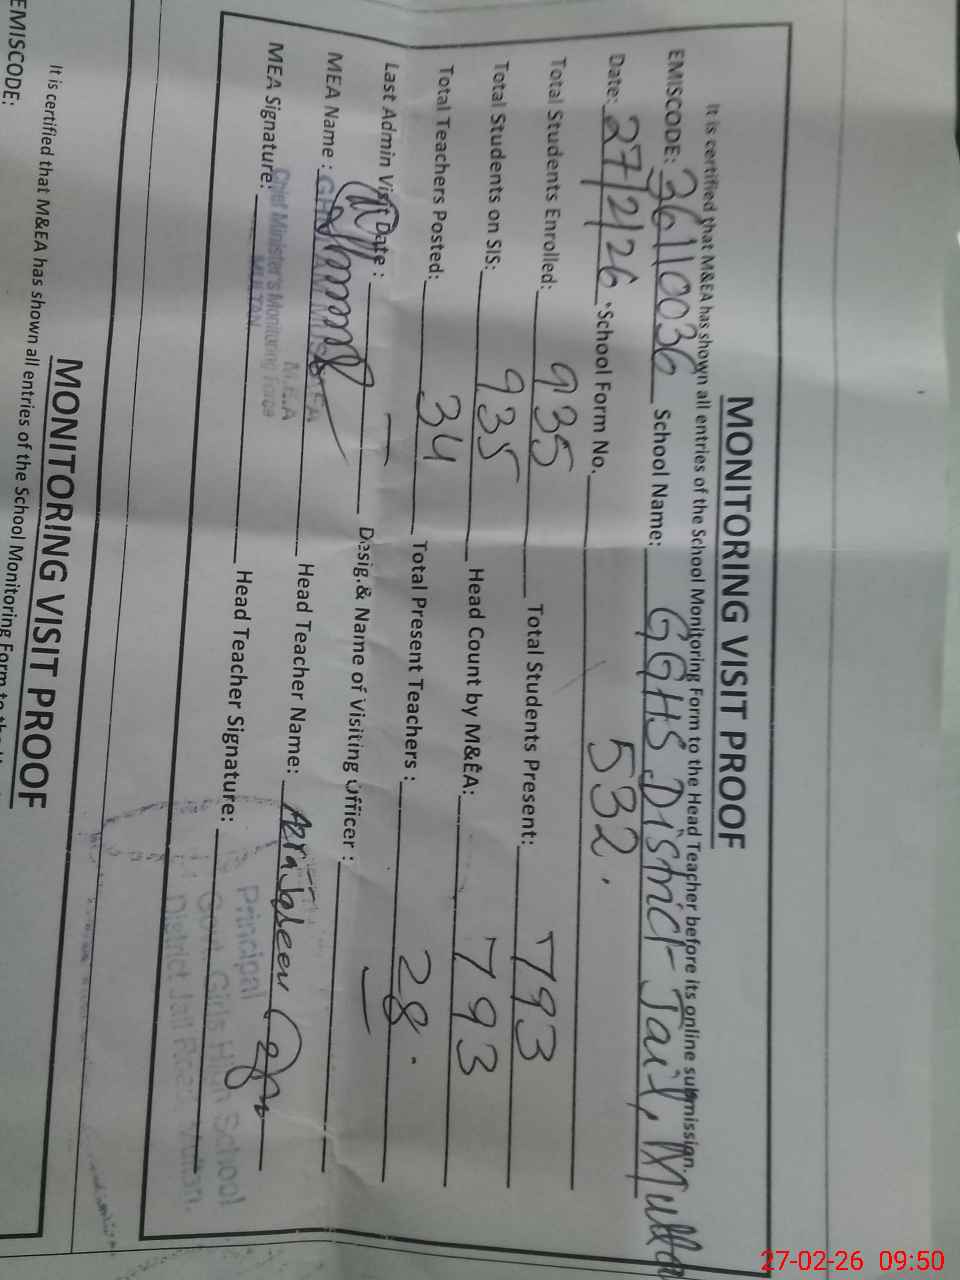 MONITORING VISIT PROOF
It is certified that M&EA has shown all entries of the School Monitoring Form to the Head Teacher before its online submission.
EMISCODE: 36110036 School Name: GGHS District Jail, Multan
Date: 27/2/26 School Form No. 532.
Total Students Enrolled: 935 Total Students Present: 793
Total Students on SIS: 935 Head Count by M&EA: 793
Total Teachers Posted: 34 Total Present Teachers : 28.
Last Admin Visit Date : — Desig.& Name of Visiting Officer : —
MEA Name : Head Teacher Name: Azra
M.E.A
Chief Minister's Monitoring Force
MULTAN.
MEA Signature: Head Teacher Signature:
Principal
Govt. Girls High School
District Jail Road Multan.
MONITORING VISIT PROOF
It is certified that M&EA has shown all entries of the School Monitoring Form to the
EMISCODE:
27-02-26 09:50